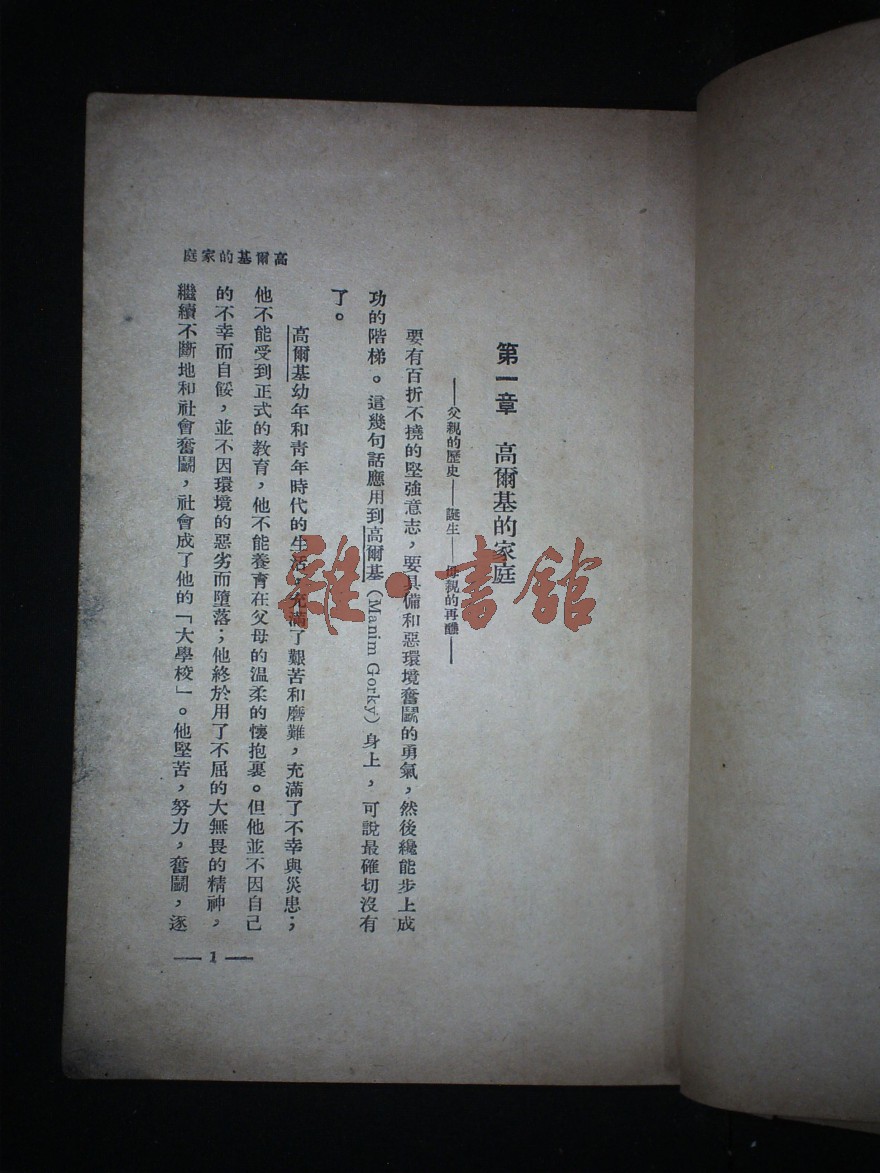 高爾基的家庭
第一章 高爾基的家庭
——父親的歷史——誕生——母親的再醮——
要有百折不撓的堅強意志，要具備和惡環境奮鬭的勇氣，然後纔能步上成
功的階梯。這幾句話應用到高爾基（Manim Gorky）身上，可說最確切沒有
了。
高爾基幼年和靑年時代的生活，充滿了艱苦和磨難，充滿了不幸與災患；
他不能受到正式的教育，他不能養育在父母的溫柔的懷抱裏。但他並不因自己
的不幸而自餒，並不因環境的惡劣而墮落；他終於用了不屈的大無畏的精神，
繼續不斷地和社會奮鬭，社會成了他的「大學校」。他堅苦，努力，奮鬭，逐
— 1 —
雜·書館